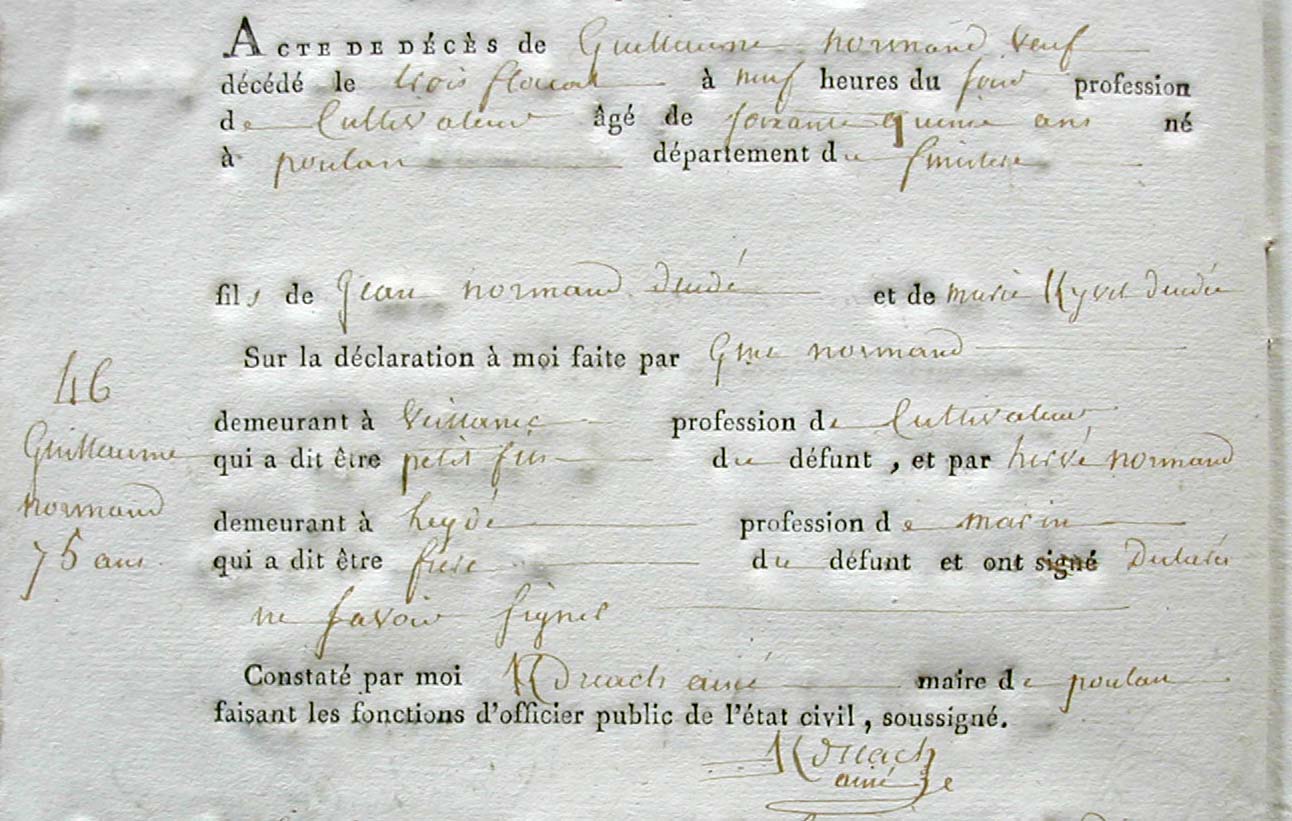 ACTE DE DÉCÈS de Guillaume normand veuf
décédé le trois floreal à neuf heures du soir profession
de Cultivateur âgé de soixante quinze ans né
à poulan département du finistere
fils de Jean normand décédé et de marie Kyvel décédée
Sur la déclaration à moi faite par Gme normand
46
demeurant à profession de Cultivateur
Guillaume
qui a dit être petit fils du défunt, et par hervé normand
normand
demeurant à profession de marin
75 ans
qui a dit être frere du défunt et ont signé Declaré
ne savoir signer
Constaté par moi Kdreach ainé maire de poulan
faisant les fonctions d'officier public de l'état civil, soussigné.
Kdreach
ainé